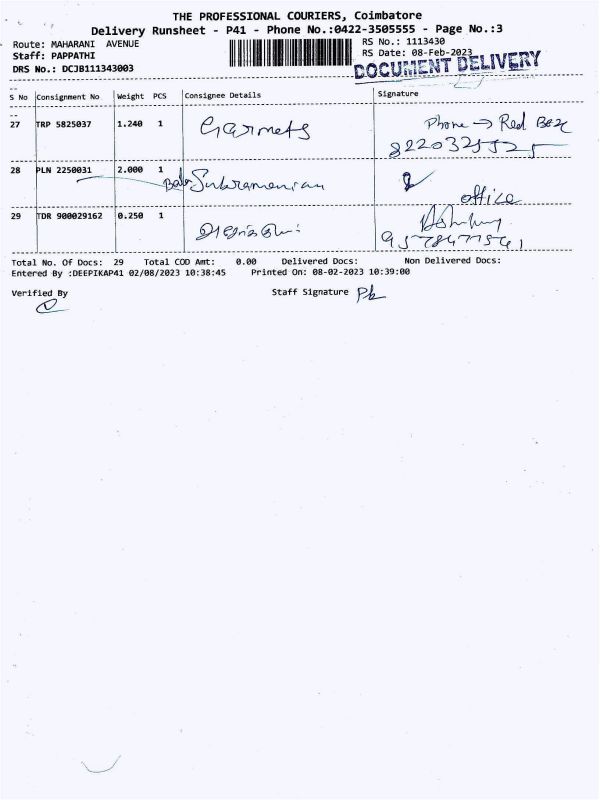 THE PROFESSIONAL COURIERS, Coimbatore
Delivery Runsheet - P41 - Phone No.:0422-3505555 - Page No.:3
Route: MAHARANI AVENUE
RS No.: 1113430
Staff: PAPPATHI
RS Date: 08-Feb-2023
DRS No.: DCJB111343003
DOCUMENT DELIVERY
S No Consignment No Weight PCS Consignee Details Signature
27 TRP 5825037 1.240 1 Garmets Phone → Red Box
28 PLN 2250031 2.000 1 Bala Subramanian
office
29 TDR 900029162 0.250 1
Total No. Of Docs: 29 Total COD Amt: 0.00 Delivered Docs: Non Delivered Docs:
Entered By :DEEPIKAP41 02/08/2023 10:38:45 Printed On: 08-02-2023 10:39:00
Verified By Staff Signature